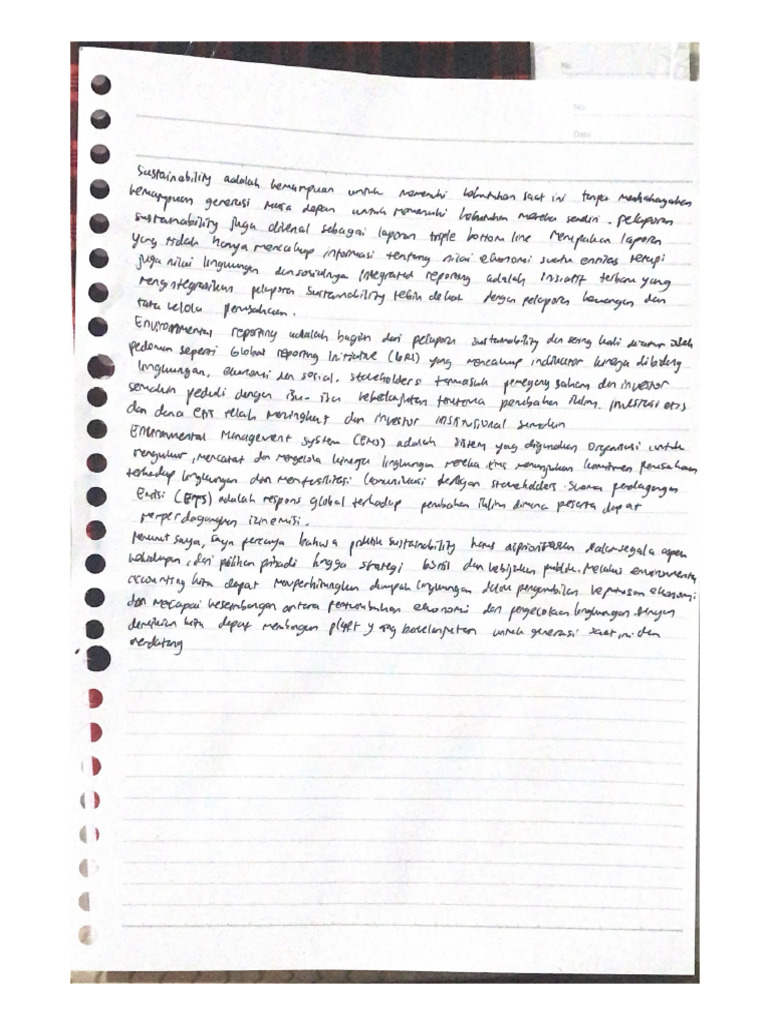 No.
No.
Date
Sustainability adalah kemampuan untuk memenuhi kebutuhan saat ini tanpa membahayakan
kemampuan generasi masa depan untuk memenuhi kebutuhan mereka sendiri. pelaporan
sustainability juga dikenal sebagai laporan triple bottom line merupakan laporan
yang tidak hanya mencakup informasi tentang nilai ekonomi suatu entitas tetapi
juga nilai lingkungan dan sosialnya Integrated reporting adalah inisiatif terbaru yang
mengintegrasikan pelaporan sustainability lebih dekat dengan pelaporan keuangan dan
tata kelola perusahaan.
Environmental reporting adalah bagian dari pelaporan sustainability dan sering kali oleh
pedoman seperti Global reporting Initiative (GRI) yang mencakup indikator kinerja dibidang
lingkungan, ekonomi dan sosial. stakeholders termasuk pemegang saham dan investor
semakin peduli dengan isu-isu keberlanjutan terutama perubahan iklim. Investasi etis
dan dana etis telah meningkat dan investor institusional semakin
Environmental Management system (EMS) adalah sistem yang digunakan Organisasi untuk
mengukur, mencatat dan mengelola kinerja lingkungan mereka. EMS menunjukan komitmen perusahaan
terhadap lingkungan dan memfasilitasi komunikasi dengan stakeholders. Skema perdagangan
Emisi (ETS) adalah respons global terhadap perubahan iklim dimana peserta dapat
memperdagangkan izin emisi.
Menurut saya, saya percaya bahwa praktik sustainability harus diprioritaskan dalam segala aspek
kehidupan, dari pilihan pribadi hingga strategi bisnis dan kebijakan publik. Melalui environmental
accounting kita dapat memperhitungkan dampak lingkungan dalam pengambilan keputusan ekonomi
dan mencapai keseimbangan antara pertumbuhan ekonomi dan pengelolaan lingkungan. dengan
demikian kita dapat membangun planet yang berkelanjutan untuk generasi saat ini dan
mendatang